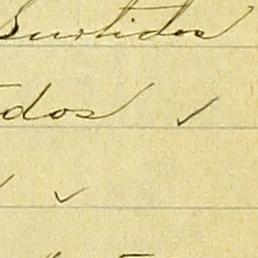 Surtidos
dos ✓
✓